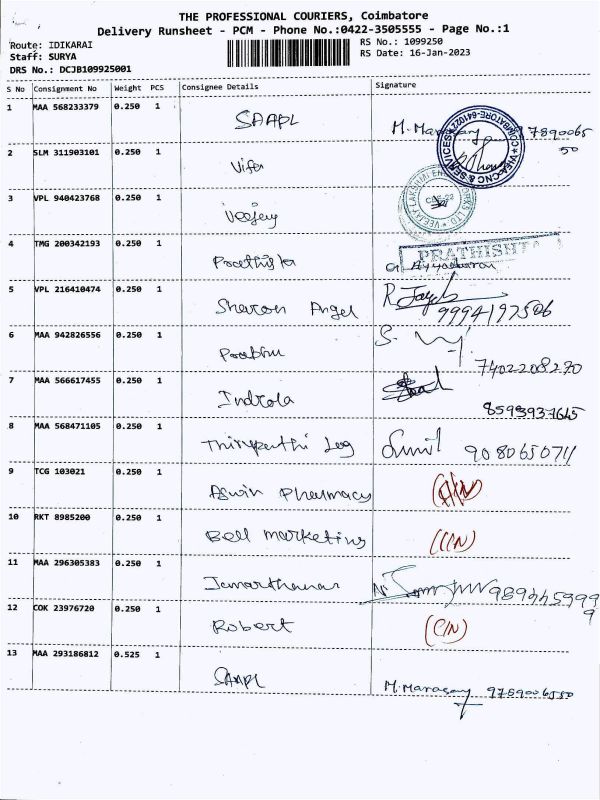 THE PROFESSIONAL COURIERS, Coimbatore
Delivery Runsheet - PCM - Phone No.:0422-3505555 - Page No.:1
Route: IDIKARAI
Staff: SURYA
DRS No.: DCJB109925001
RS No.: 1099250
RS Date: 16-Jan-2023
S No Consignment No Weight PCS Consignee Details Signature
1 MAA 568233379 0.250 1 SAAPL
2 SLM 311903101 0.250 1
3 VPL 940423768 0.250 1 Veejey
4 TMG 200342193 0.250 1 PRATHISHTA
5 VPL 216410474 0.250 1 Sharon Angel 9994197506
6 MAA 942826556 0.250 1 Prabhu 7402208270
7 MAA 566617455 0.250 1 Indrola
8 MAA 568471105 0.250 1 Thirupathi Leg Sunil 908065071
9 TCG 103021 0.250 1 Aswin Pharmacy
10 RKT 8985200 0.250 1 Bell marketing
11 MAA 296305383 0.250 1
12 COK 23976720 0.250 1 Robert
13 MAA 293186812 0.525 1 SAAPL M. Marasamy 9789006550